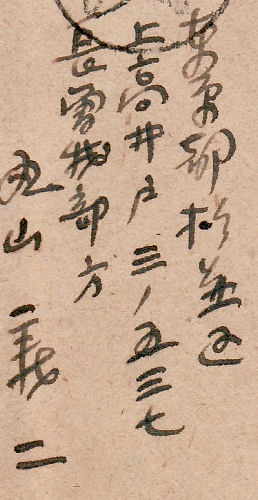 東京都杉並区
上高井戸三ノ五三七
長曽我部方
丸山義二